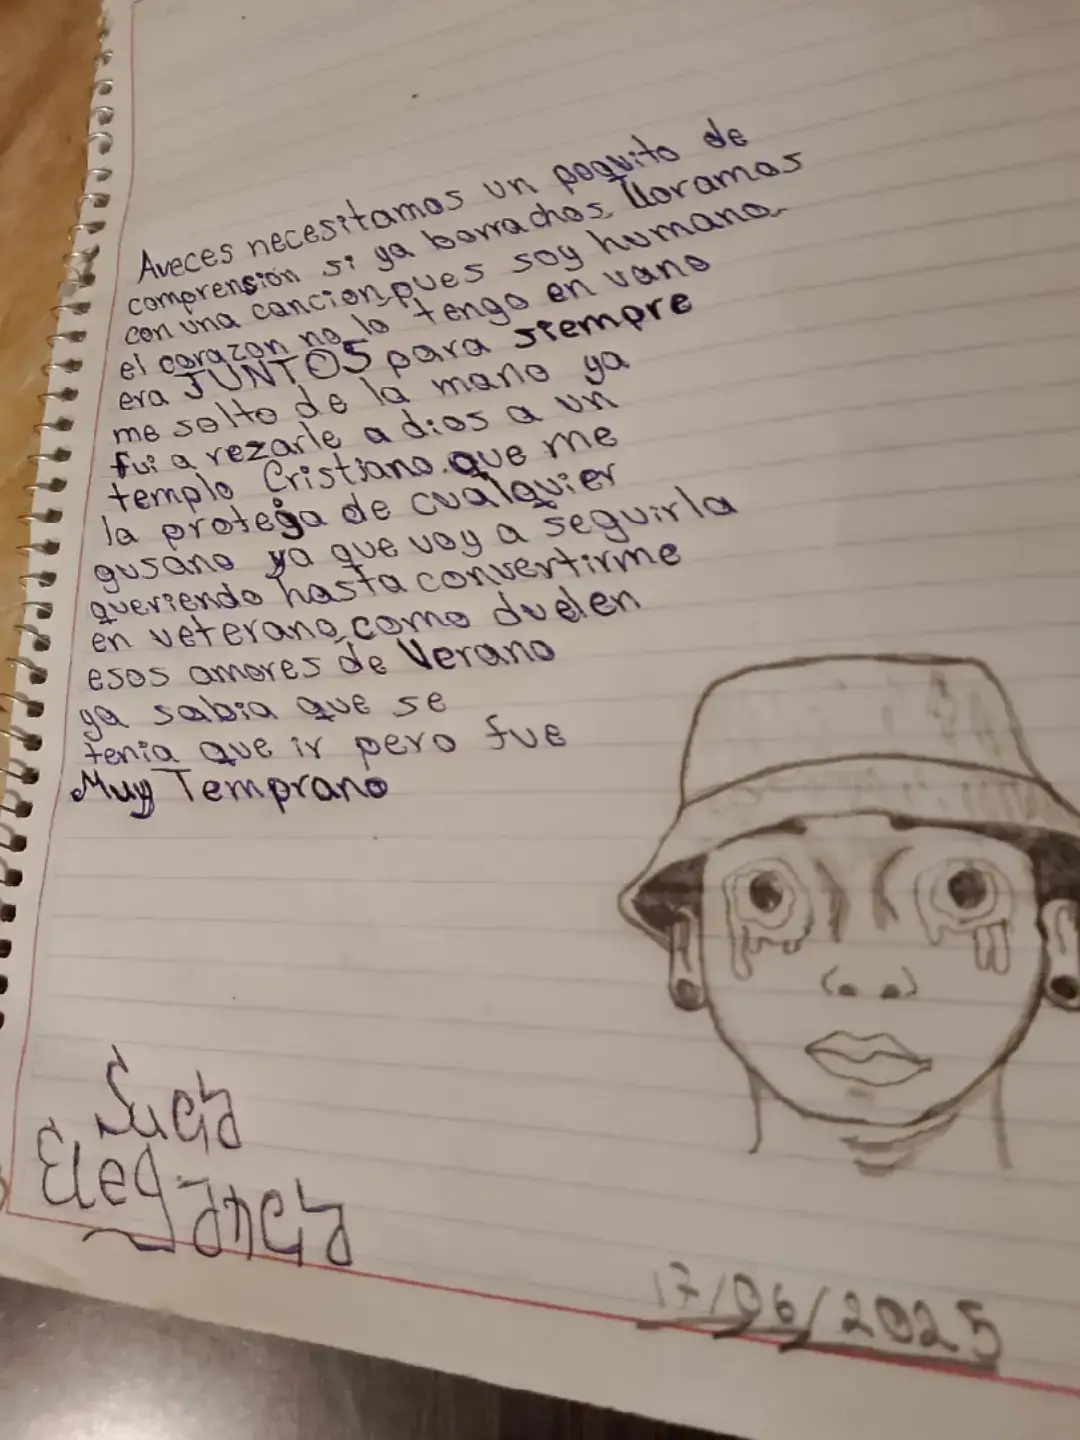 Aveces necesitamos un poquito de
comprensión si ya borrachos lloramos
con una cancion, pues soy humano
el corazon no lo tengo en vano
era JUNTOS para siempre
me solto de la mano ya
fui a rezarle a dios a un
templo Cristiano. que me
la protega de cualquier
gusano ya que voy a seguirla
queriendo hasta convertirme
en veterano, como duelen
esos amores de Verano
ya sabia que se
tenia que ir pero fue
Muy Temprano
Sucia
Elegancia
17/06/2025